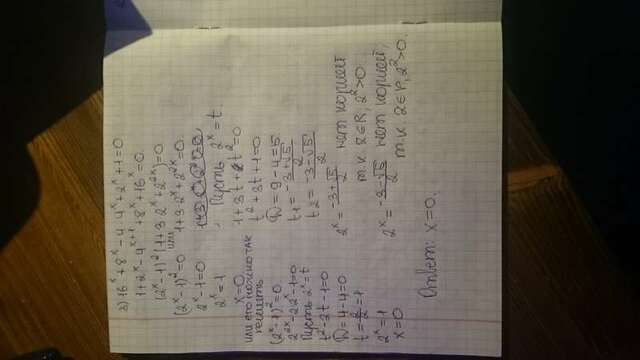 3) 16^x + 8^x - 4 · 4^x + 2^x + 1 = 0
1 + 2^x - 4^(x+1) + 8^x + 16^x = 0
(2^x - 1)^2 (1 + 3 · 2^x + 2^(2x)) = 0
(2^x - 1)^2 = 0 или 1 + 3 · 2^x + 2^(2x) = 0
2^x - 1 = 0
2^x = 1
x = 0
или его можно так решить
(2^x - 1)^2 = 0
2^(2x) - 2 · 2^x - 1 = 0
Пусть 2^x = t
t^2 - 2t - 1 = 0
D = 4 - 4 = 0
t = 2/2 = 1
2^x = 1
x = 0
Пусть 2^x = t.
1 + 3t + t^2 = 0
t^2 + 3t + 1 = 0
D = 9 - 4 = 5
t1 = (-3+√5)/2
t2 = (-3-√5)/2
2^x = (-3+√5)/2 нет корней
т.к. 2 ∈ R, 2^2 > 0.
2^x = (-3-√5)/2 нет корней,
т.к. 2 ∈ R, 2^2 > 0.
Ответ: x = 0.